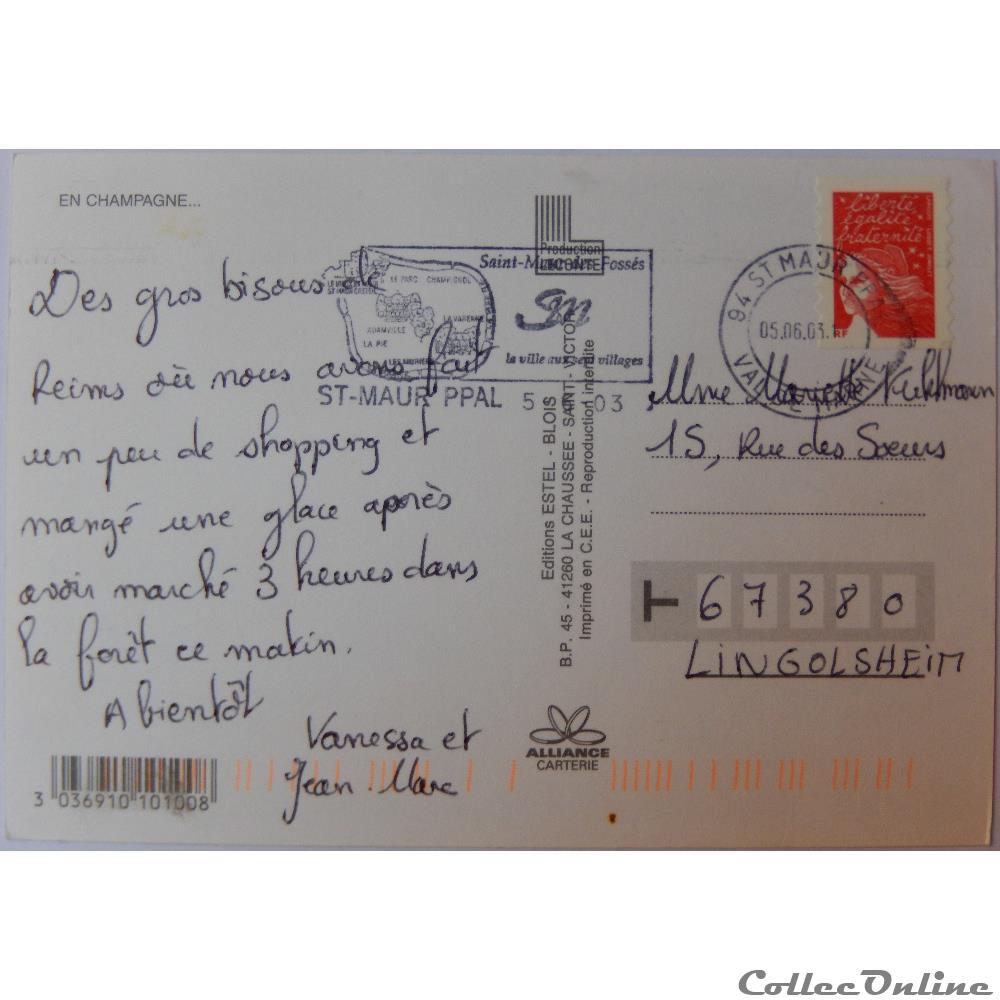 EN CHAMPAGNE...
Des gros bisous de
Reims où nous avons fait
un peu de shopping et
mangé une glace après
avoir marché 3 heures dans
la forêt ce matin.
A bientôt
Vanessa et
Jean Marc
3 036910 101008
Production
LECONTE
Saint-Maur des Fossés
LE PARC CHAMPIGNOL
ST MAUR CRETEIL
LA VARENNE
ADAMVILLE
LA PIE
LES MURIERS
Sm
la ville aux sept villages
ST-MAUR PPAL 5 03
Editions ESTEL - BLOIS
B.P. 45 - 41260 LA CHAUSSEE - SAINT - VICTOR
Imprimé en C.E.E. - Reproduction interdite
ALLIANCE
CARTERIE
liberté
égalité
fraternité
94 ST MAUR PPAL
05.06.03
VAL DE MARNE
Mme Mariette
15, Rue des Soeurs
67380
LINGOLSHEIM
CollecOnline